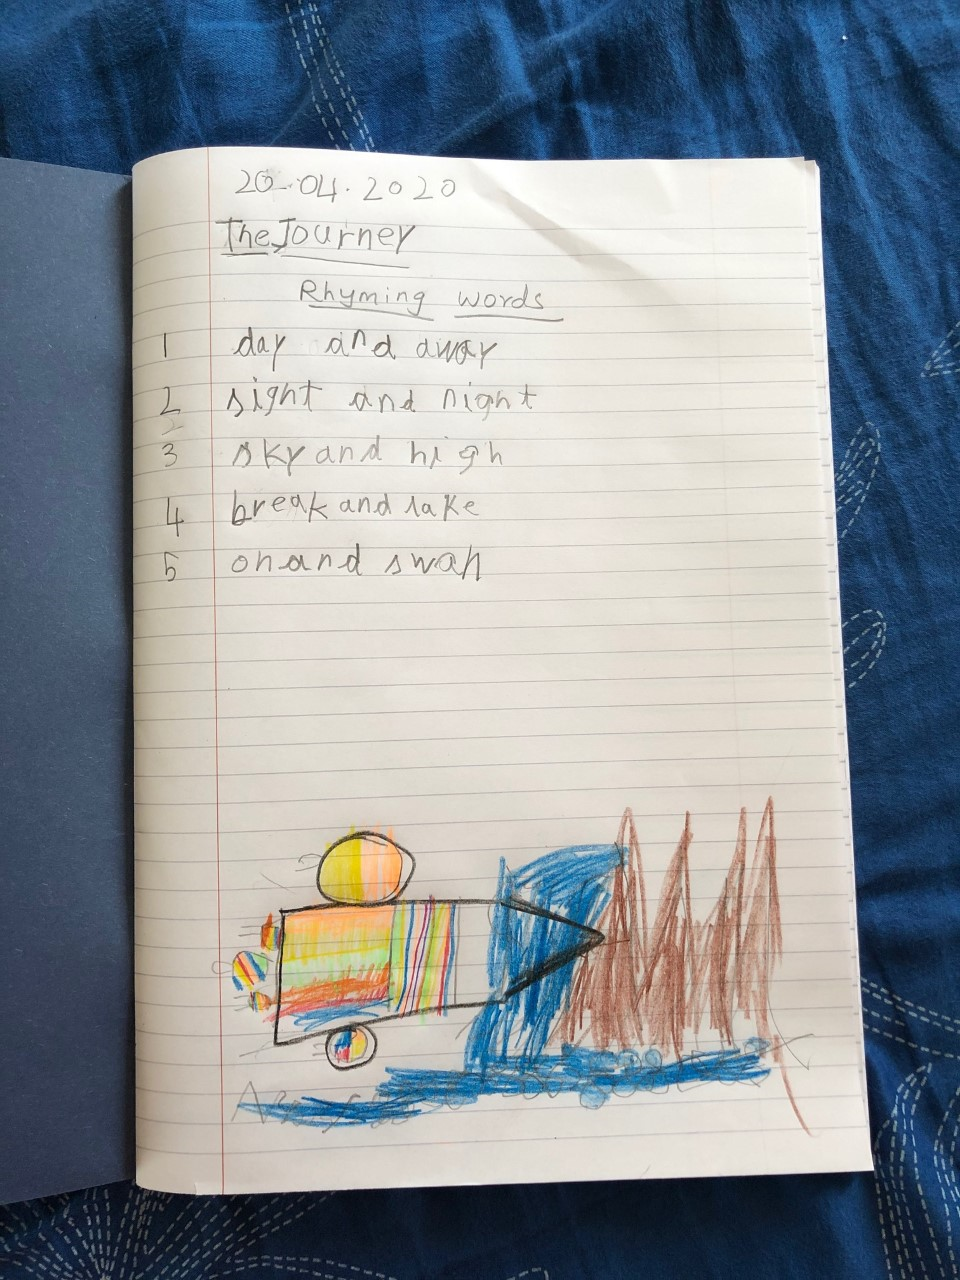 20.04.2020
The Journey
Rhyming words
1 day and away
2 sight and night
3 sky and high
4 break and lake
5 on and swan